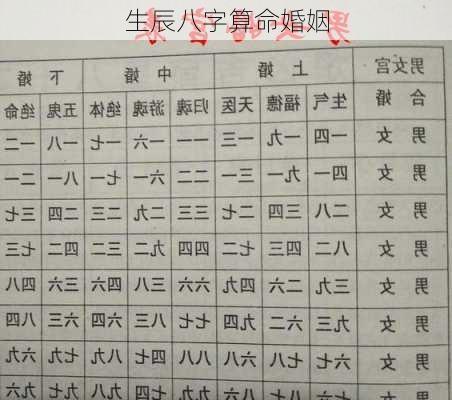 生辰八字算命婚姻
男女宫 上婚 中婚 下婚
合婚 生气 福德 天医 归魂 游魂 绝体 五鬼 绝命
男女 一四 一九 一三 一一 一六 一七 一八 一二
男女 四一 九一 三一 二二 六一 七一 八一 二一
男女 二八 三四 二七 三三 二九 二三 二四 三七
男女 八二 四三 七二 四四 九二 三二 四二 七三
男女 三九 二六 四九 六六 三八 四六 三六 四八
男女 九三 六二 九四 七七 八三 六四 六三 八四
男女 六七 七八 六八 八八 四七 八九 七九 六九
男女 七六 八七 八六 九九 七四 九八 九七 九六